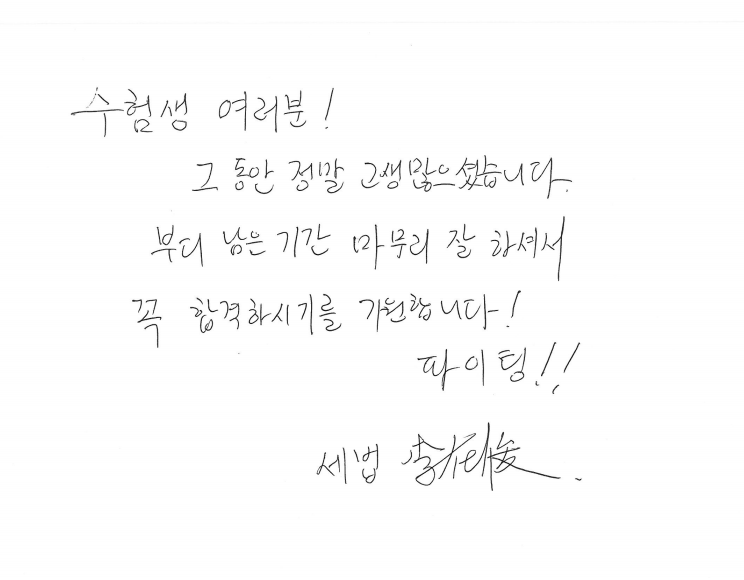 수험생 여러분!
그 동안 정말 고생많으셨습니다.
부디 남은 기간 마무리 잘 하셔서
꼭 합격하시기를 기원합니다!
파이팅!!
세법 李